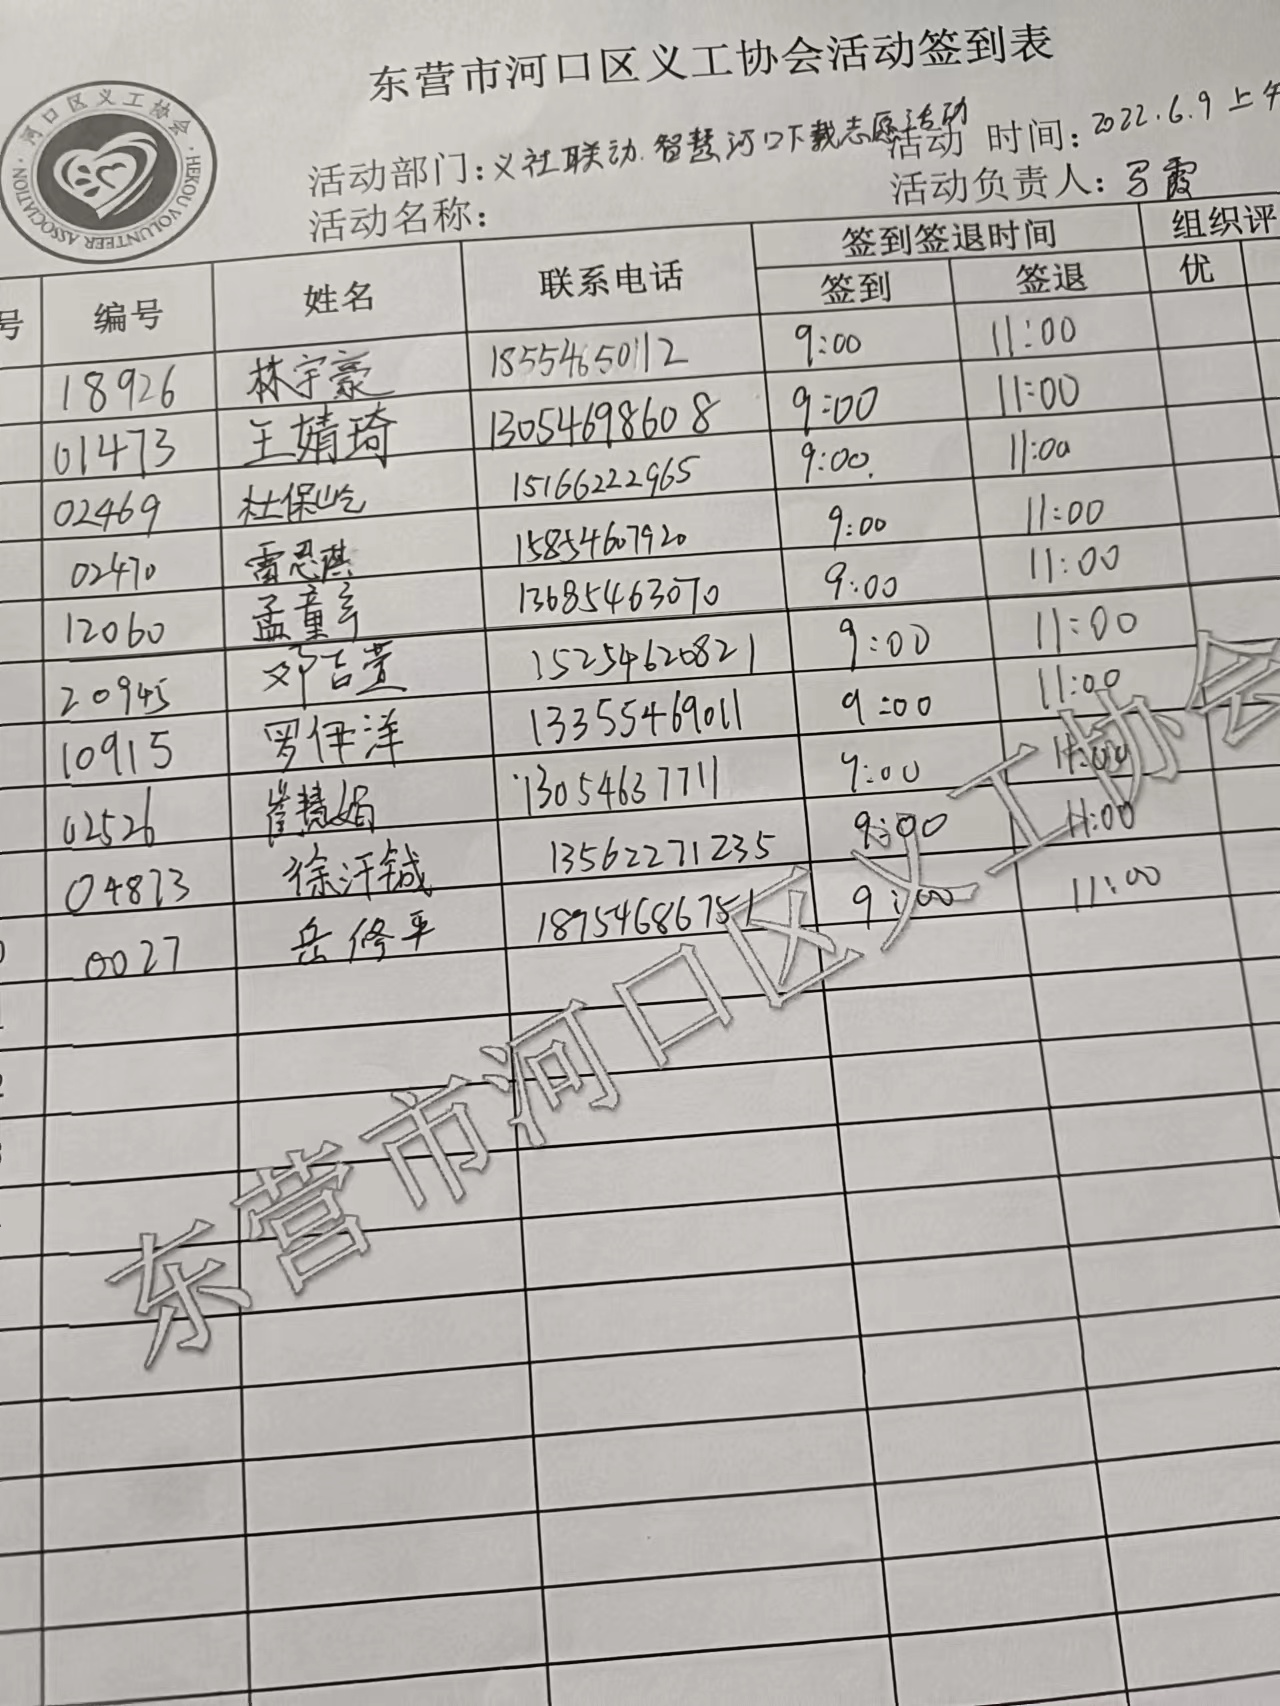 东营市河口区义工协会活动签到表
河口区义工协会
HEKOU VOLUNTEER ASSOCIATION
活动部门：义社联动.智慧河口下载志愿活动 活动 时间：2022.6.9 上午
活动名称： 活动负责人：霞
号 编号 姓名 联系电话 签到签退时间 组织评
签到 签退 优
18926 林宇豪 18554650112 9:00 11:00
01473 王婧琦 13054698608 9:00 11:00
02469 杜保屹 15166222965 9:00 11:00
02470 雷思琪 15854607920 9:00 11:00
12060 孟童 13685463070 9:00 11:00
20945 邓吉萱 15254620821 9:00 11:00
10915 罗伊洋 13355469011 9:00 11:00
02526 崔慧娟 13054637711 9:00 11:00
04873 徐汗铖 13562271235 9:00 11:00
0027 岳修平 18954686751 9:00 11:00
东营市河口区义工协会